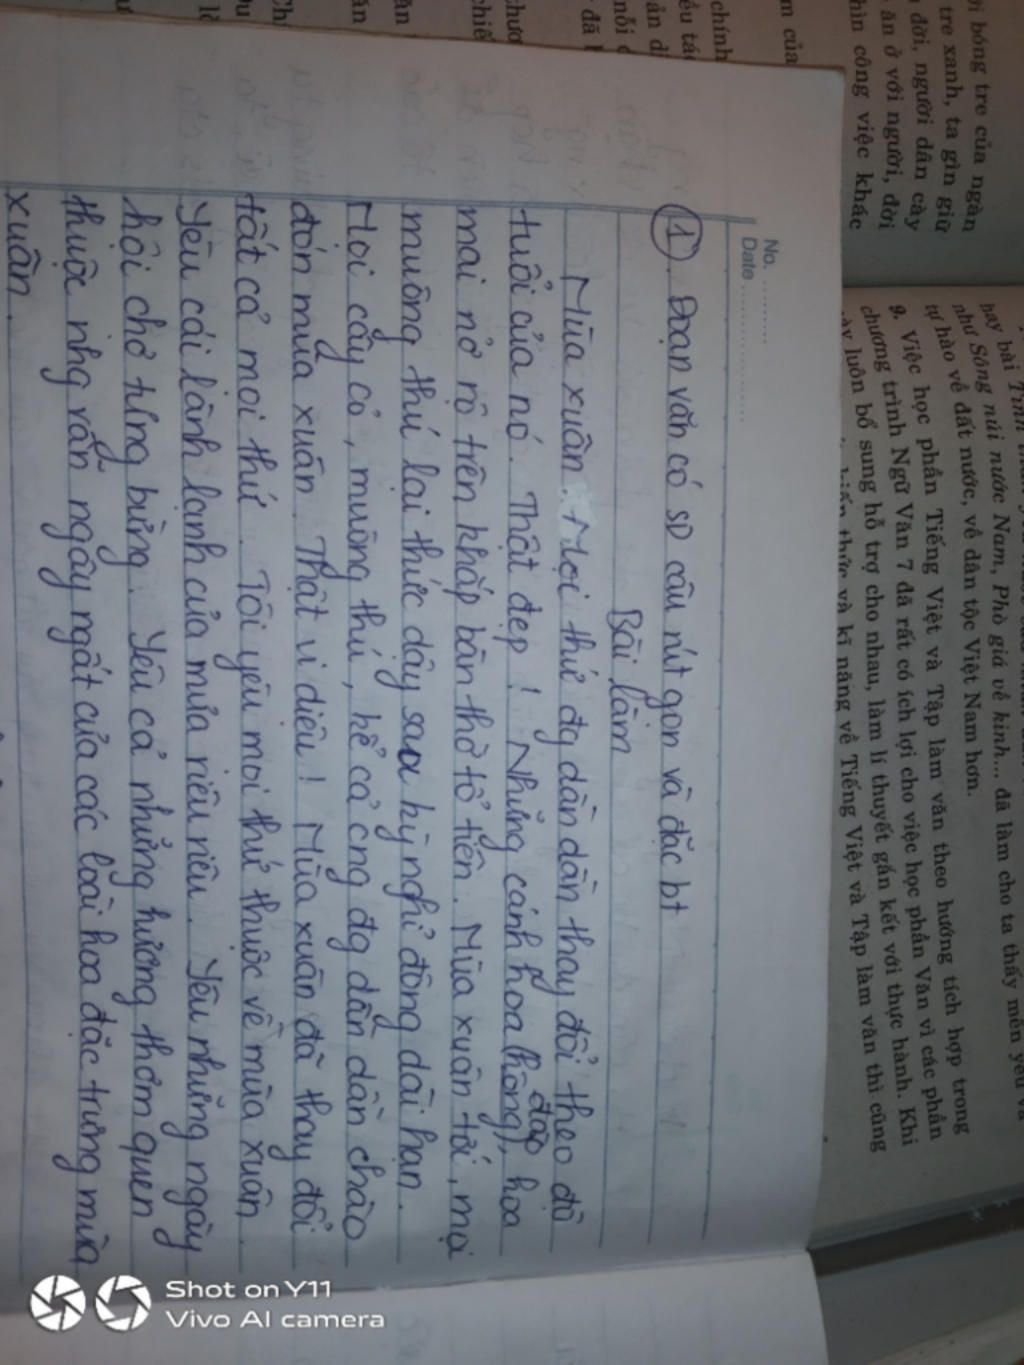 ời bóng tre của ngàn
tre xanh, ta gìn giữ
đời, người dân cày
ăn ở với người, đời
hìn công việc khác
m của
chính
nỗi
đã
hay bài Tinh
như Sông núi nước Nam, Phò giá về kinh... đã làm cho ta thấy mến yêu và
tự hào về đất nước, về dân tộc Việt Nam hơn.
9. Việc học phần Tiếng Việt và Tập làm văn theo hướng tích hợp trong
chương trình Ngữ Văn 7 đã rất có ích lợi cho việc học phần Văn vì các phần
này luôn bổ sung hỗ trợ cho nhau, làm lí thuyết gắn kết với thực hành. Khi
kiến thức và kĩ năng về Tiếng Việt và Tập làm văn thì cũng
No. ............
Date ........................
1. Đoạn văn có sD câu rút gọn và đặc bt
Bài làm
Mùa xuân. Mọi thứ đg dần dần thay đổi theo độ
tuổi của nó. Thật đẹp! Những cánh hoa hồng, hoa đào
mai nở rộ trên khắp bàn thờ tổ tiên. Mùa xuân tới, mọi
muông thú lại thức dậy sau kỳ nghỉ đông dài hạn.
Mọi cây cỏ, muông thú, kể cả cng đg dần dần chào
đón mùa xuân. Thật vi diệu! Mùa xuân đã thay đổi
tất cả mọi thứ. Tôi yêu mọi thứ thuộc về mùa xuân.
Yêu cái lành lạnh của mưa riêu riêu. Yêu những ngày
hội chợ tưng bừng. Yêu cả những hương thơm quen
thuộc nhg vẫn ngây ngất của các loài hoa đặc trưng mùa
xuân.
Shot on Y11
Vivo AI camera